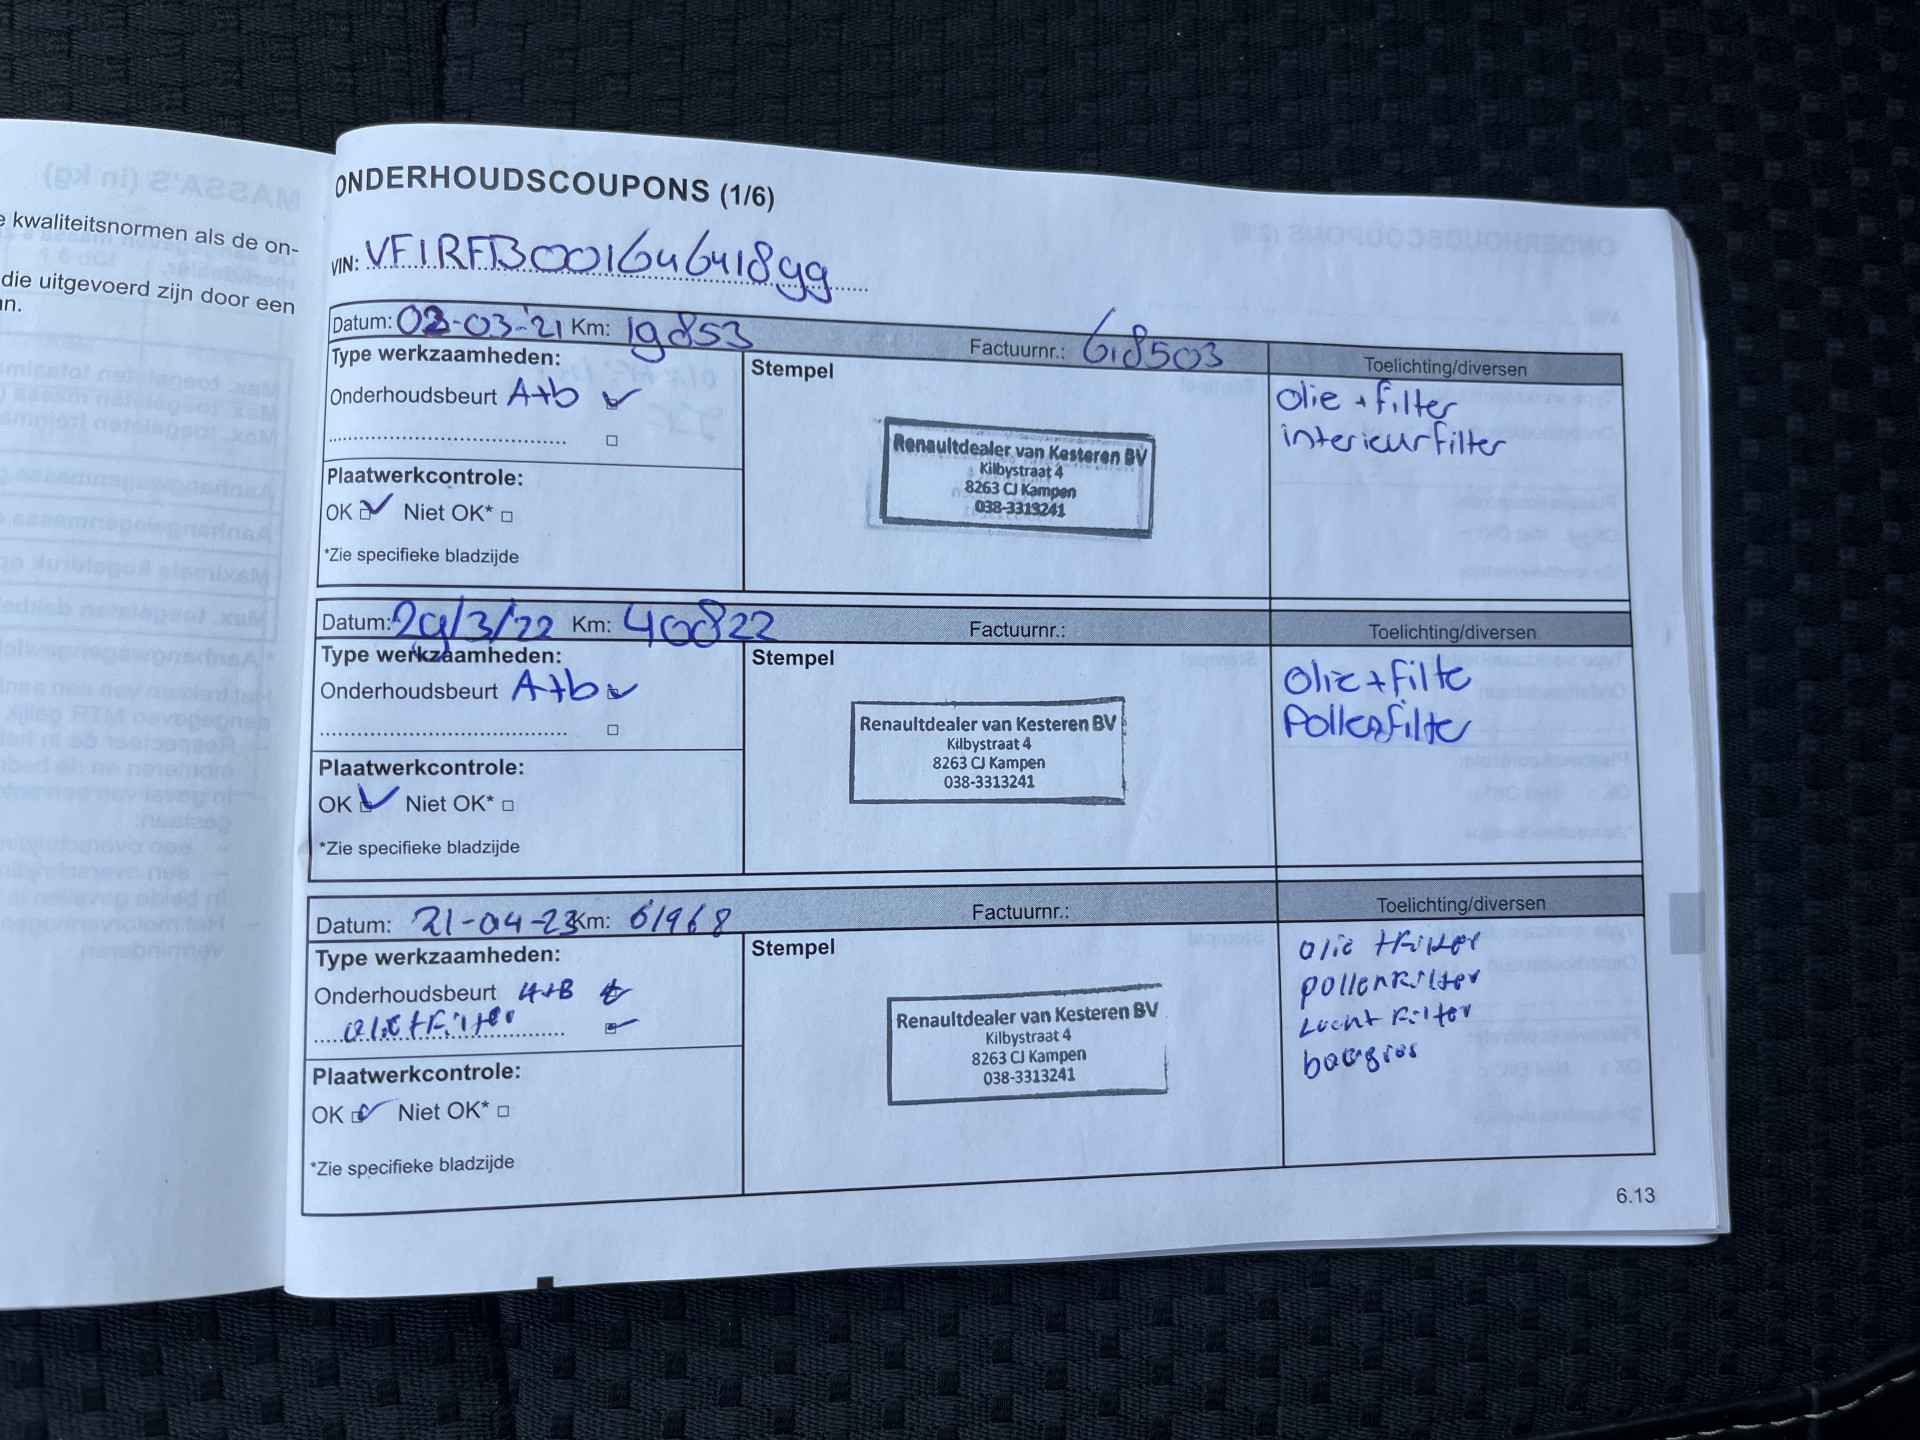 e kwaliteitsnormen als de on-
die uitgevoerd zijn door een
an.
ONDERHOUDSCOUPONS (1/6)
VIN: VF1RFB00164641899
Datum: 02-03-'21 Km: 19853 Factuurnr.: 618503 Toelichting/diversen
Type werkzaamheden:
Onderhoudsbeurt A+b
Plaatwerkcontrole:
OK Niet OK*
*Zie specifieke bladzijde
Stempel
Renaultdealer van Kesteren BV
Kilbystraat 4
8263 CJ Kampen
038-3313241
olie + filter
interieurfilter
Datum: 29/3/22 Km: 40822 Factuurnr.: Toelichting/diversen
Type werkzaamheden:
Onderhoudsbeurt A+b
Plaatwerkcontrole:
OK Niet OK*
*Zie specifieke bladzijde
Stempel
Renaultdealer van Kesteren BV
Kilbystraat 4
8263 CJ Kampen
038-3313241
Olie + filte
Pollenfilte
Datum: 21-04-23 Km: 61968 Factuurnr.: Toelichting/diversen
Type werkzaamheden:
Onderhoudsbeurt A+B
olie+Filter
Plaatwerkcontrole:
OK Niet OK*
*Zie specifieke bladzijde
Stempel
Renaultdealer van Kesteren BV
Kilbystraat 4
8263 CJ Kampen
038-3313241
olie + Filter
pollenFilter
Lucht Filter
6.13